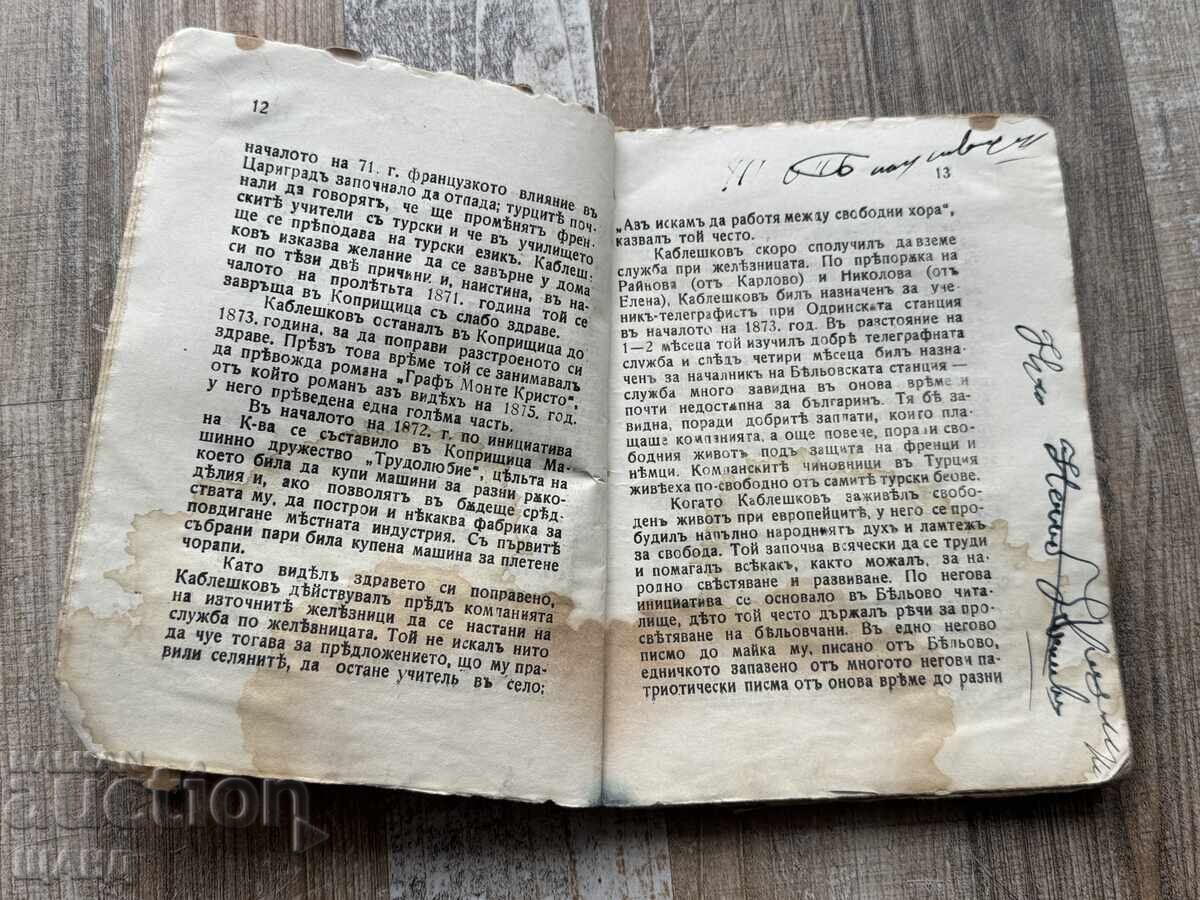 12
началото на 71. г. французкото влияние въ
Цариградъ започнало да отпада; турцитѣ поч-
нали да говорятъ, че ще промѣнятъ френ-
скитѣ учители съ турски и че въ училището
ще се прѣподава на турски езикъ. Каблеш-
ковъ изказва желание да се завърне у дома
си по тѣзи двѣ причини и, наистина, въ на-
чалото на пролѣтьта 1871. година той се
завръща въ Копривщица съ слабо здраве.
Каблешковъ останалъ въ Копривщица до
1873. година, за да поправи разстроеното си
здраве. Прѣзъ това време той се занимавалъ
да прѣвожда романа „Графъ Монте Кристо",
отъ който романъ азъ видѣхъ на 1875. год.
у него прѣведена една голѣма часть.
Въ началото на 1872. г. по инициатива
на К-ва се съставило въ Копривщица Ма-
шинно дружество „Трудолюбие", цѣльта на
което била да купи машини за разни рѫко-
дѣлия и, ако позволятъ въ бѫдеще срѣд-
ствата му, да построи и нѣкаква фабрика за
повдигане мѣстната индустрия. Съ първитѣ
събрани пари била купена машина за плетене
чорапи.
Като видѣлъ здравето си поправено,
Каблешковъ дѣйствувалъ прѣдъ компанията
на източнитѣ желѣзници да се настани на
служба по желѣзницата. Той не искалъ нито
да чуе тогава за прѣдложението, що му пра-
вили селянитѣ, да остане учитель въ село;
13
„Азъ искамъ да работя между свободни хора",
казвалъ той често.
Каблешковъ скоро сполучилъ да вземе
служба при желѣзницата. По прѣпорѫка на
Райнова (отъ Карлово) и Николова (отъ
Елена), Каблешковъ билъ назначенъ за уче-
никъ-телеграфистъ при Одринската станция
въ началото на 1873. год. Въ разстояние на
1—2 мѣсеца той изучилъ добрѣ телеграфната
служба и слѣдъ четири мѣсеца билъ назна-
ченъ за началникъ на Бѣльовската станция —
служба много завидна въ онова врѣме и
почти недостѫпна за българинъ. Тя бѣ за-
видна, поради добритѣ заплати, които пла-
щаше компанията, а още повече, поради сво-
бодния животъ подъ защита на френци и
нѣмци. Компанскитѣ чиновници въ Турция
живѣеха по-свободно отъ самитѣ турски беове.
Когато Каблешковъ заживѣлъ свобо-
денъ животъ при европейцитѣ, у него се про-
будилъ напълно народниятъ духъ и ламтежъ
за свобода. Той започва всячески да се труди
и помагалъ всѣкакъ, както можалъ, за на-
родно свѣстяване и развиване. По негова
инициатива се основало въ Бѣльово чита-
лище, дѣто той често държалъ рѣчи за про-
свѣтяване на бѣльовчани. Въ едно негово
писмо до майка му, писано отъ Бѣльово,
едничкото запазено отъ многото негови па-
триотически писма отъ онова врѣме до разни